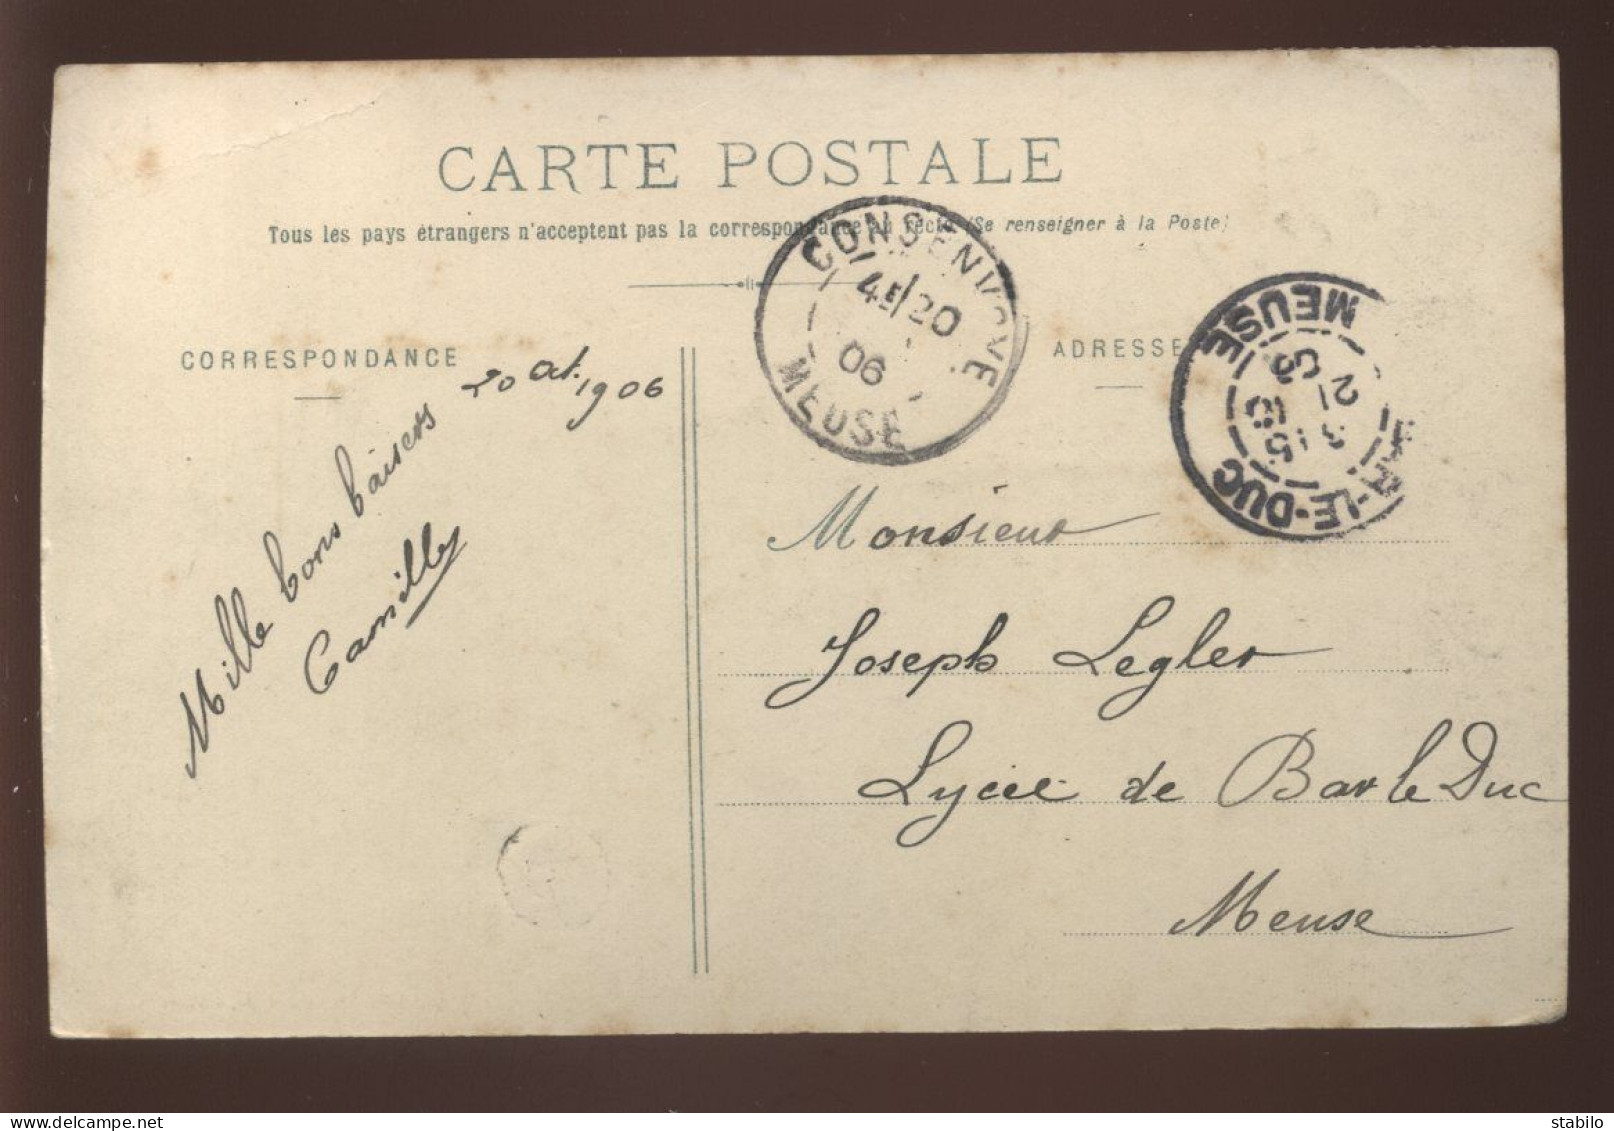 CARTE POSTALE
Tous les pays étrangers n'acceptent pas la correspondance au recto (Se renseigner à la Poste)
CORRESPONDANCE
ADRESSE
20 Oct. 1906
Mille bons baisers
Camille
CONSENVOYE
4E/20
06
MEUSE
BAR-LE-DUC
MEUSE
Monsieur
Joseph Legler
Lycée de Bar le Duc
Meuse
delcampe.net
stabilo